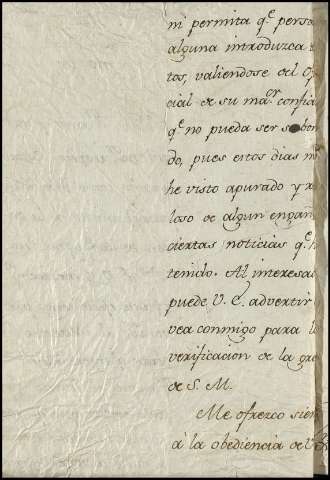 ni permita qe perso
alguna introduzca
tos, valiendose del Of
cial de su mayr confia
qe no pueda ser sobor
do, pues estos dias m
he visto apurado y re
loso de algun engañ
ciertas noticias qe h
tenido. Al interesa
puede V. E. advertir
vea conmigo para l
verificacion de la gra
de S. M.
Me ofrezco siem
à la obediencia de V.